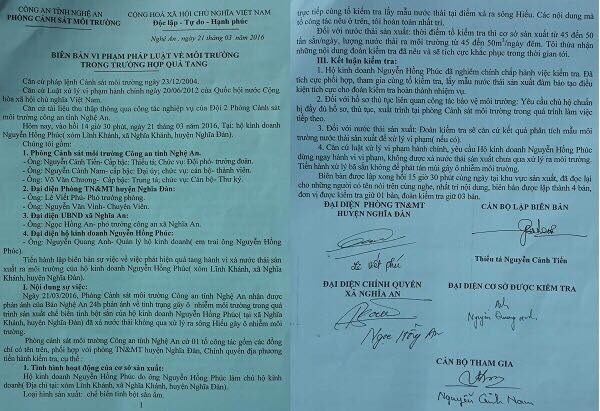 CÔNG AN TỈNH NGHỆ AN
PHÒNG CẢNH SÁT MÔI TRƯỜNG
CỘNG HOÀ XÃ HỘI CHỦ NGHĨA VIỆT NAM
Độc lập - Tự do - Hạnh phúc
Nghệ An, ngày 21 tháng 03 năm 2016
BIÊN BẢN VI PHẠM PHÁP LUẬT VỀ MÔI TRƯỜNG
TRONG TRƯỜNG HỢP QUẢ TANG
Căn cứ pháp lệnh Cảnh sát môi trường ngày 23/12/2004.
Căn cứ Luật xử lý vi phạm hành chính ngày 20/06/2012 của Quốc hội nước Cộng
hòa xã hội chủ nghĩa Việt Nam.
Căn cứ tài liệu thu thập thông qua công tác nghiệp vụ của Đội 2 Phòng Cảnh sát
môi trường công an tỉnh Nghệ An.
Hôm nay, vào hồi 14 giờ 30 phút, ngày 21 tháng 03 năm 2016, Tại: hộ kinh doanh
Nguyễn Hồng Phúc( xóm Lĩnh Khánh, xã Nghĩa Khánh, huyện Nghĩa Đàn).
Chúng tôi gồm:
1. Phòng Cảnh sát môi trường Công an tỉnh Nghệ An.
-Ông: Nguyễn Cảnh Tiến- Cấp bậc: Thiếu tá; Chức vụ: Đội phó- trưởng đoàn.
-Ông: Nguyễn Cảnh Nam- cấp bậc: Đại úy; chức vụ: cán bộ- thành viên.
-Ông: Võ Văn Chương- Cấp bậc: Trung tá; chức vụ: Cán bộ- Thư ký.
2. Đại diện Phòng TN&MT huyện Nghĩa Đàn:
-Ông: Lê Viết Phú- Phó trưởng phòng.
-Ông: Nguyễn Văn Vinh- Chuyên Viên.
3. Đại diện UBND xã Nghĩa An:
- Ông: Ngọc Hồng An- phó trưởng công an xã Nghĩa An.
4. Đại diện hộ kinh doanh Nguyễn Hồng Phúc:
- Ông: Nguyễn Quang Anh- Quản lý hộ kinh doanh( em trai ông Nguyễn Hồng
Phúc).
Tiến hành lập biên bản sự việc về việc phát hiện quả tang hành vi xả nước thải sản
xuất ra môi trường của hộ kinh doanh Nguyễn Hồng Phúc( xóm Lĩnh Khánh, xã Nghĩa
Khánh, huyện Nghĩa Đàn).
I. Nội dung sự việc:
Ngày 21/03/2016, Phòng Cảnh sát môi trường Công an tỉnh Nghệ An nhận được
phản ánh của Báo Nghệ An 24h phản ánh về tình trạng gây ô nhiễm môi trường trong
quá trình sản xuất chế biến tinh bột sắn của hộ kinh doanh Nguyễn Hồng Phúc( tại xã Nghĩa
Khánh, huyện Nghĩa Đàn) đã xả nước thải không qua xử lý ra sông Hiếu gây ô nhiễm môi
trường.
Phòng cảnh sát môi trường Công an tỉnh Nghệ An cử 01 tổ công tác gồm các đồng
chí có tên trên, phối hợp với phòng TN&MT huyện Nghĩa Đàn, Chính quyền địa phương
tiến hành kiểm tra, cụ thể:
1. Tình hình hoạt động của cơ sở sản xuất:
Hộ kinh doanh Nguyễn Hồng Phúc do ông Nguyễn Hồng Phúc làm chủ hộ kinh
doanh( Địa chỉ tại: xóm Lĩnh Khánh, xã Nghĩa Khánh, huyện Nghĩa Đàn).
Loại hình sản xuất: chế biến tinh bột sắn ẩm.
1
trực tiếp cùng tổ kiểm tra lấy mẫu nước thải tại điểm xả ra sông Hiếu. Các nội dung mà
tổ công tác nêu ở trên, tôi hoàn toàn nhất trí.
Đối với nước thải sản xuất: thời điểm kiểm tra thì cơ sở sản xuất từ 45 đến 50
tấn sắn/ngày, lượng nước thải ra môi trường từ 45 đến 50m³/ngày đêm. Tôi thừa nhận
những nội dung đoàn kiểm tra đã nêu và sẽ tích cực khắc phục trong thời gian tới.
III. Kết luận kiểm tra:
1. Hộ kinh doanh Nguyễn Hồng Phúc đã nghiêm chỉnh chấp hành việc kiểm tra. Đã
tích cực phối hợp, tham gia cùng tổ kiểm tra, lấy mẫu nước thải sản xuất đảm bảo tạo điều
kiện tích cực cho đoàn kiểm tra hoàn thành nhiệm vụ.
2. Đối với hồ sơ thủ tục liên quan công tác bảo vệ môi trường: Yêu cầu chủ hộ chuẩn
bị đầy đủ hồ sơ, thủ tục, xuất trình tại phòng Cảnh sát môi trường trong quá trình làm việc
tiếp theo.
3. Đối với nước thải sản xuất: Đoàn kiểm tra sẽ căn cứ kết quả phân tích mẫu môi
trường nước thải sản xuất để xử lý vi phạm( nếu có).
4. Căn cứ luật xử lý vi phạm hành chính, yêu cầu Hộ kinh doanh Nguyễn Hồng Phúc
dừng ngay hành vi vi phạm, không được xả nước thải sản xuất chưa qua xử lý ra môi trường.
Tiến hành xử lý bã sắn không để phát tán mùi gây ô nhiễm môi trường.
Biên bản được lập xong hồi 15 giờ 30 phút cùng ngày tại khu vực sản xuất, đã đọc lại
cho những người có tên trên cùng nghe, nhất trí nội dung, biên bản được lập thành 4 bản,
đơn vị được kiểm tra giữ 01 bản, đoàn kiểm tra giữ 03 bản.
ĐẠI DIỆN PHÒNG TN&MT
HUYỆN NGHĨA ĐÀN
CÁN BỘ LẬP BIÊN BẢN
Lê Viết Phú
Thiếu tá Nguyễn Cảnh Tiến
ĐẠI DIỆN CHÍNH QUYỀN
XÃ NGHĨA AN
ĐẠI DIỆN CƠ SỞ ĐƯỢC KIỂM TRA
Anh
Nguyễn Quang Anh
Ngọc Hồng An
CÁN BỘ THAM GIA
Nguyễn Cảnh Nam